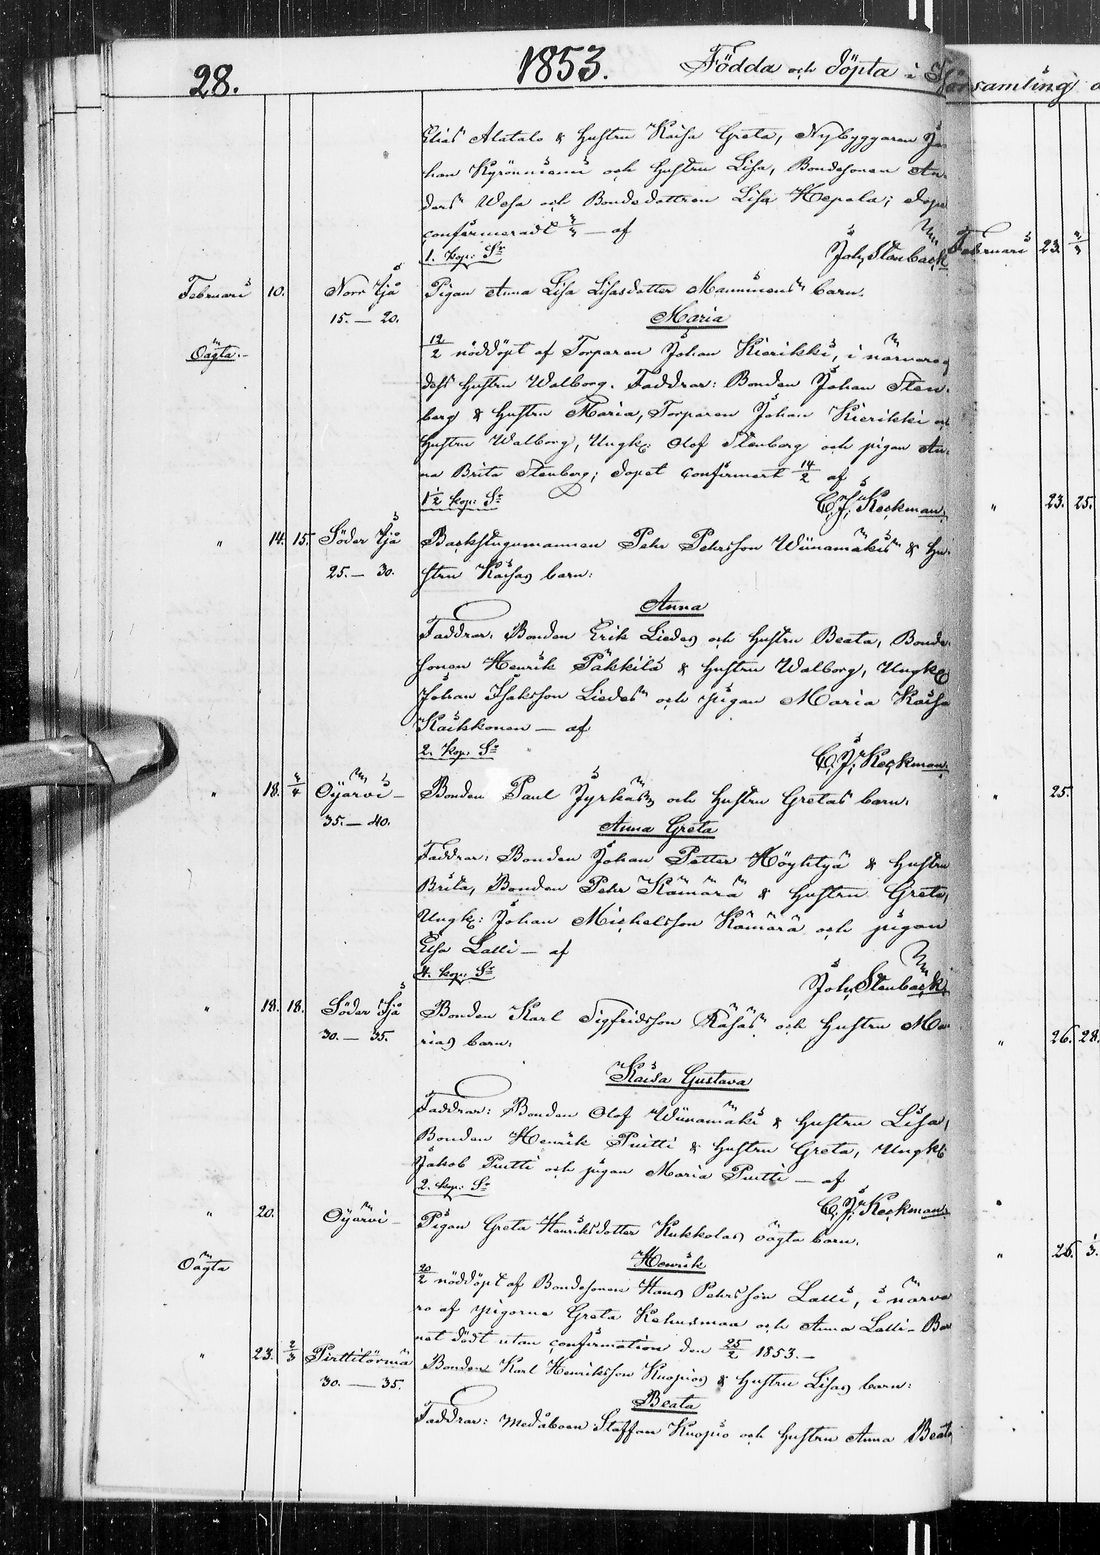 28. 1853. Födda och döpta i Församling
Elias Alatalo & Hustru Kaisa Greta, Nybyggaren Jo-
han Kyrönniemi och Hustru Lisa, Bondesonen An-
ders Wesa och Bondedottren Lisa Hepola; dopet
confirmeradt — af
1. kop. Sr Joh. Stenbäck
Februari 10. Norr Ijå Pigan Anna Lisa Lisasdotter Manninens barn.
15. — 20. Maria
Oägta.- 12/2 nöddöpt af Torparen Johan Kierikki, i närvaro af
dess Hustru Walborg. Faddrar: Bonden Johan Sten-
berg & Hustru Maria, Torparen Johan Kierikki och
Hustru Walborg, Ungk: Olof Stenberg och pigan An-
na Brita Stenberg; dopet confirmert 14/2 af
1 1/2 kop: Sr C. J. Keckman.
" 14. 15. Söder Ijå Backstugumannen Pehr Pehrsson Wiinamäkis & Hu-
25. — 30. stru Kaisas barn:
Anna
Faddrar: Bonden Erik Liedes och Hustru Beata, Bonde-
sonen Henrik Päkkilä & Hustru Walborg, Ungk:
Johan Isaksson Liedes och pigan Maria Kaisa
Kaikkonen — af
2. kop. Sr C. J. Keckman.
" 18. Oijärvi — Bonden Paul Jyrkäs och Hustru Gretas barn:
35. — 40. Anna Greta
Faddrar: Bonden Johan Petter Höyhtyä & Hustru
Brita, Bonden Pehr Kämärä & Hustru Greta,
Ungk: Johan Michelsson Kämärä och pigan
Elsa Lalli — af
4. kop. Sr Joh. Stenbäck.
" 18. 18. Söder Ijå Bonden Karl Sigfridsson Räsäs och Hustru Ma-
30. — 35. rias barn.
Kaisa Gustava
Faddrar: Bonden Olof Wiinamäki & Hustru Lisa,
Bonden Henrik Puitti & Hustru Greta, Ungk:
Jakob Puitti och pigan Maria Puitti — af
2. kop. Sr C. J. Keckman.
" 20. Oijärvi — Pigan Greta Henriksdotter Kukkolas oägta barn.
Oägta Henrik
20/2 nöddöpt af Bondesonen Hans Pehrsson Lalli, i närva-
ro af pigorna Greta Kehusmaa och Anna Lalli — Bar-
net dödt utan confirmation den 25/2 1853. —
" 23. 2/3 Pirttitörmä Bonden Karl Henriksson Kuopios & Hustru Lisas barn:
30. — 35. Beata
Faddrar: Medåboen Staffan Kuopio och Hustru Anna Beata,
Februari 23.
" 23. 25.
" 25.
" 26. 28.
"
" 26. 1/3